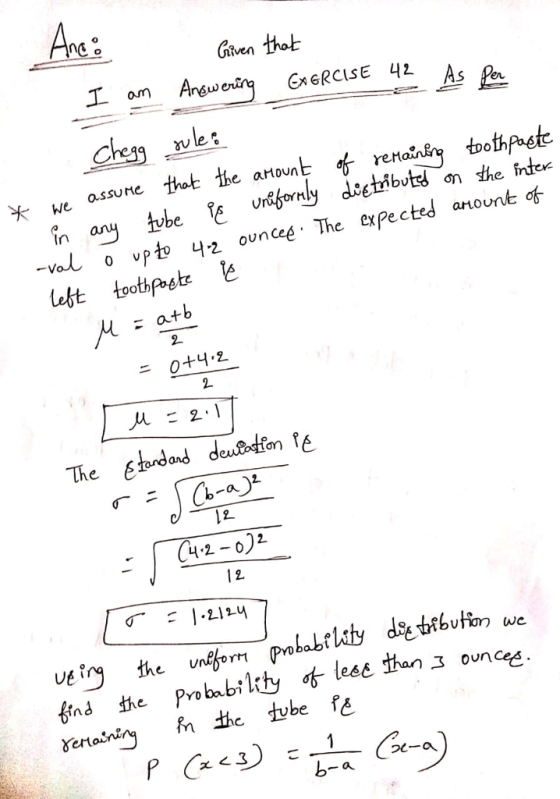 Ans:
Given that
I am Answering EXERCISE 42 As Per
Chegg rule:
* we assume that the amount of remaining toothpaste
in any tube is uniformly distributed on the inter
-val 0 up to 4.2 ounces. The expected amount of
left toothpaste is
μ = a+b/2
= 0+4.2/2
μ = 2.1
The standard deviation is
σ = √(b-a)²/12
= √(4.2-0)²/12
σ = 1.2124
using the uniform probability distribution we
find the probability of less than 3 ounces.
remaining in the tube is
P (x<3) = 1/b-a (x-a)